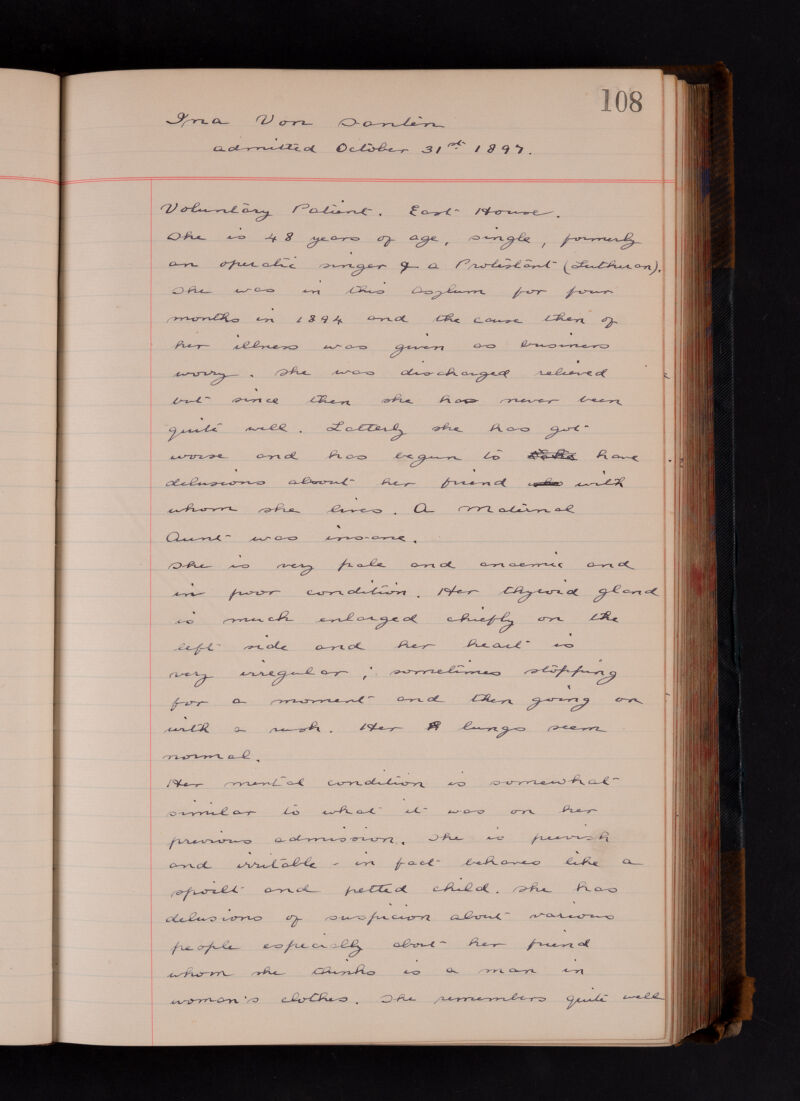 108
Ina Von Santen
admitted October 31st 1897.
Voluntary Patient. East House.
She is 48 years of age, single, formerly
an operatic singer & a Protestant (Lutheran).
She was in this Asylum for four
months in 1894 and the cause then of
her illness was given as business
worry. She was discharged relieved
but since then she has never been
quite well. Latterly she has got
worse and has begun to have
delusions about her friend with
whom she lives. A maternal
Aunt was insane.
She is very pale and anaemic and
in poor condition. Her thyroid gland
is much enlarged chiefly on the
left side and her heart is
very irregular; sometimes stopping
for a moment and then going on
with a rush. Her lungs seem
normal.
Her mental condition is somewhat
similar to what it was on her
previous admission. She is peevish
and irritable - in fact behaves like a
spoilt and petted child. She has
delusions of suspicion about various
people especially about her friend
whom she thinks is a man in
woman's clothes. She remembers quite well